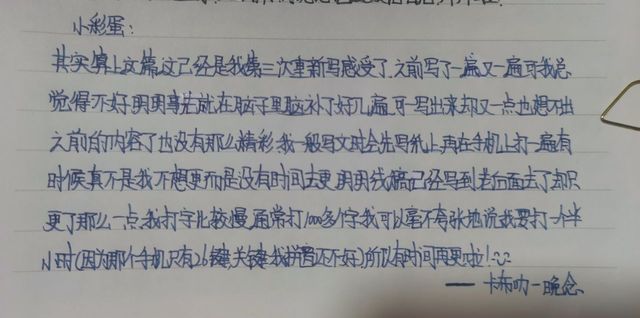 小彩蛋:
其实算上这篇这已经是我第三次重新写感受了.之前写了一遍又一遍可我总
觉得不好.明明事先就在脑子里脑补了好几遍.可一写出来却又一点也想不出
之前的内容了也没有那么精彩.我一般写文时会先写纸上再在手机上打一遍有
时候真不是我不想更而是没有时间去更.明明线稿已经写到老后面去了却只
更了那么一点.我打字比较慢.通常打1000多个字我可以毫不夸张地说我要打一个半
小时(因为那个手机只有26键,关键我拼音还不好)所以有时间再更啦!
——卡布叻一晚念